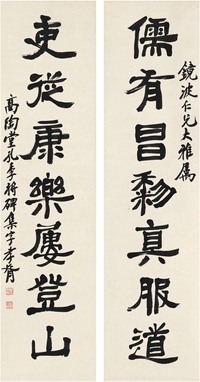 儒有昌黎真服道
鏡波仁兄大雅屬
吏從康樂屢登山
高陶堂孔季將碑集字孝胥